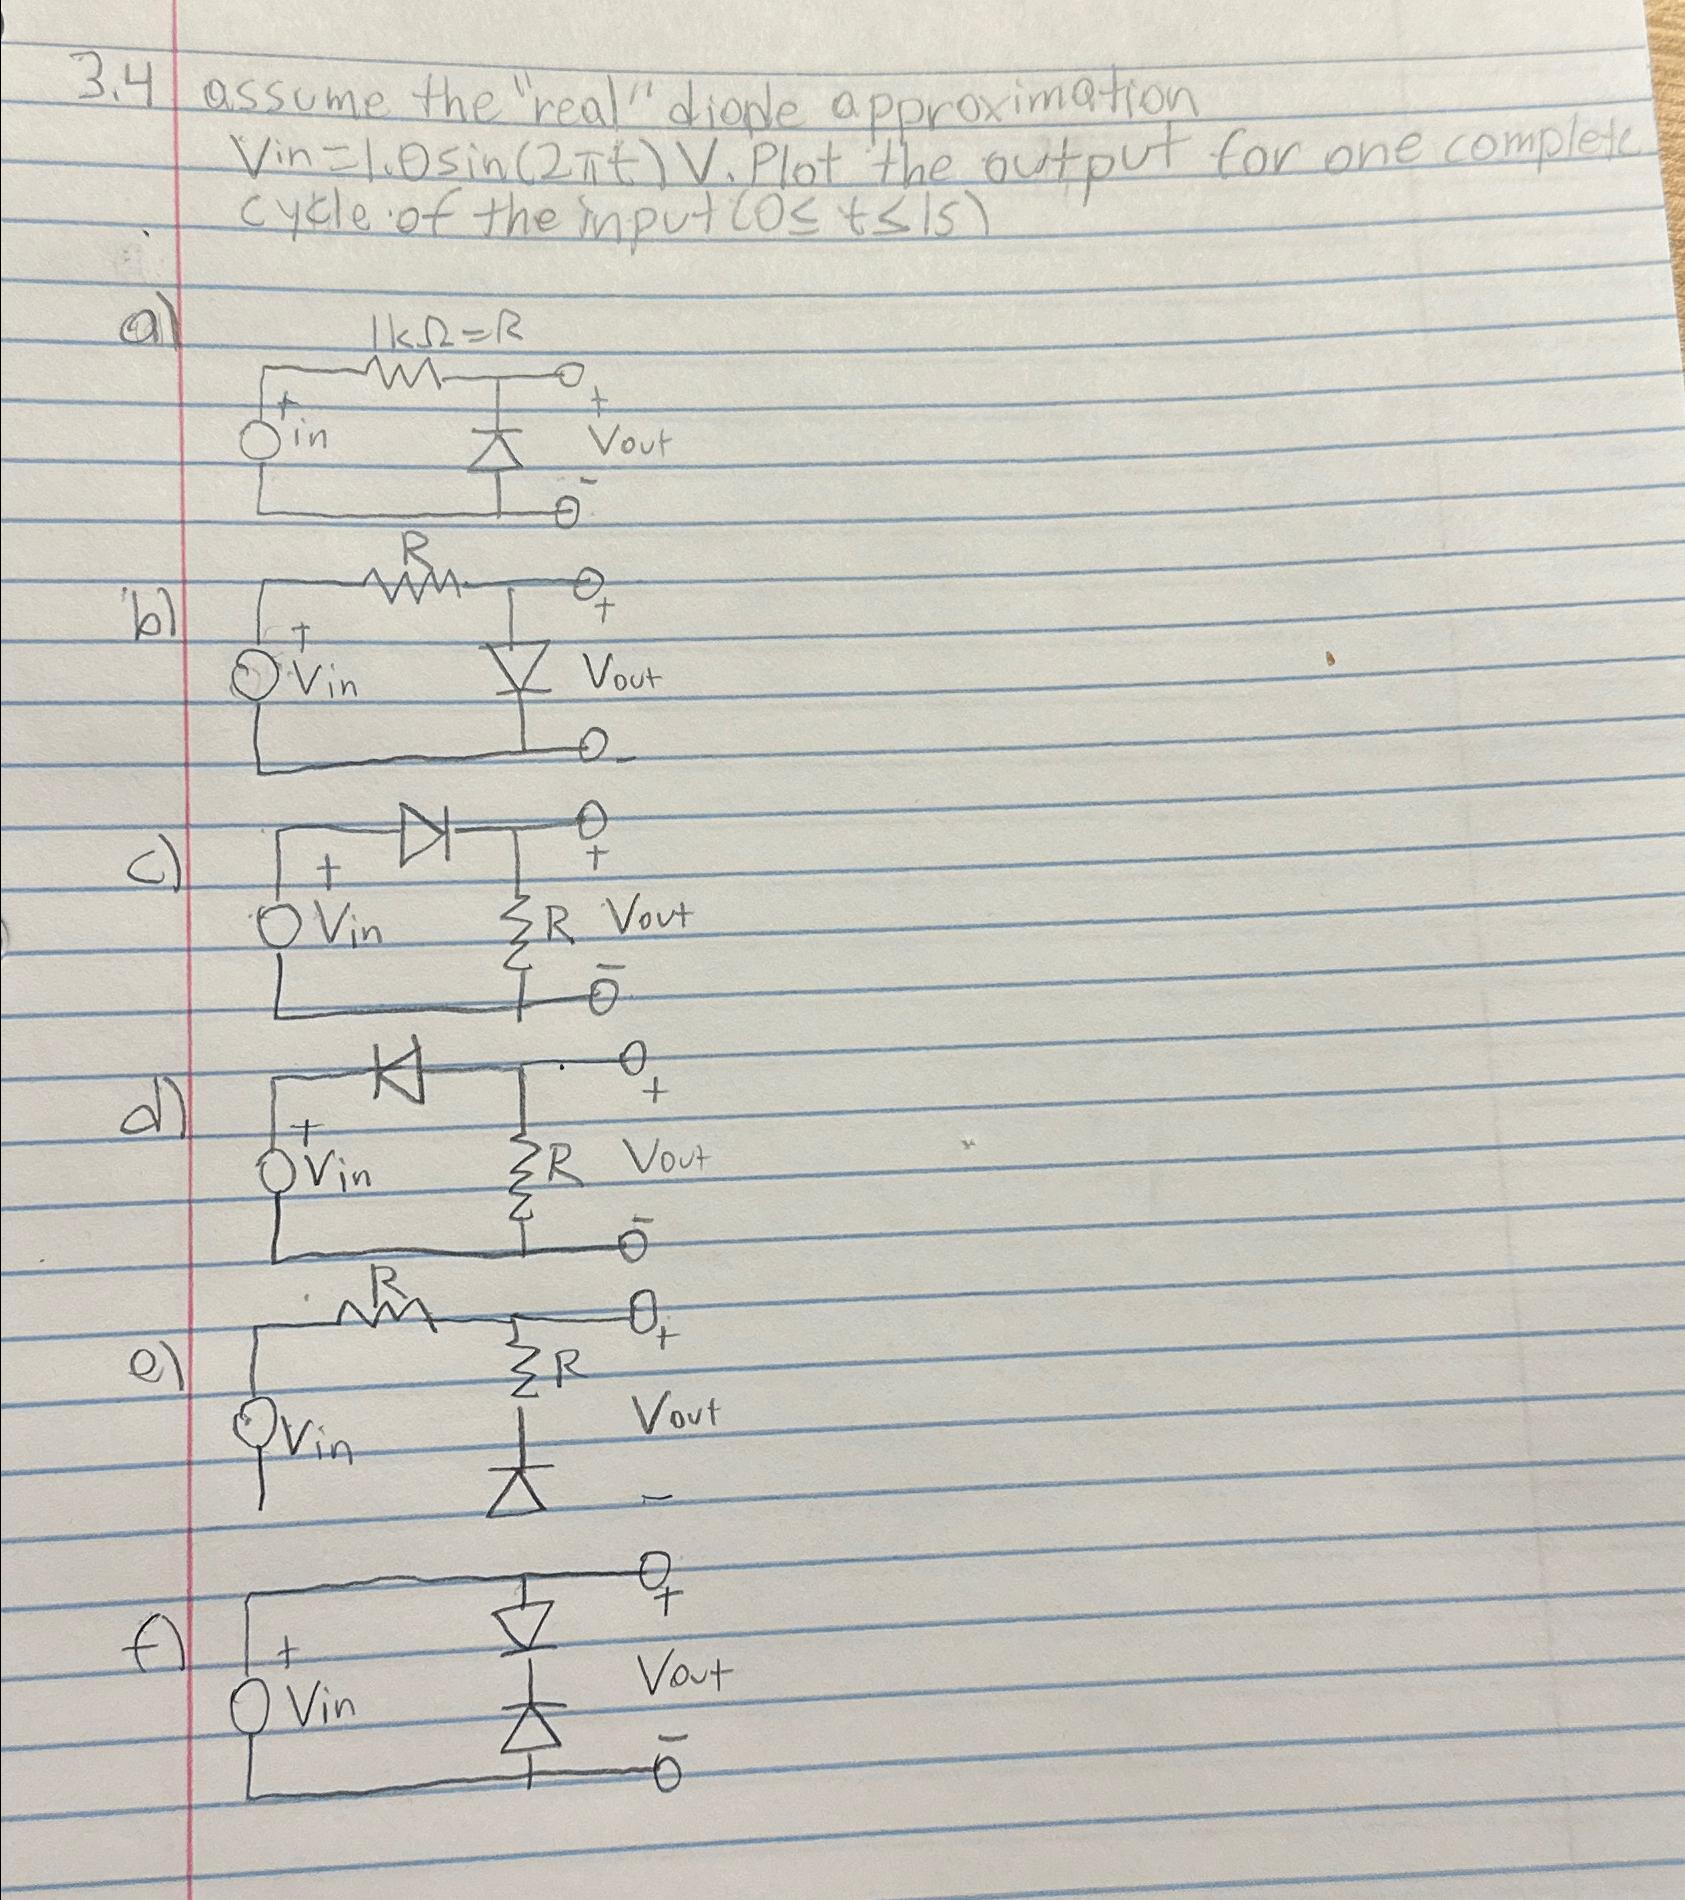 3.4 assume the "real" diode approximation
Vin=1.0sin(2πt)V. Plot the output for one complete
cycle of the input (0≤ t≤1s)
a)
1kΩ=R
+
in
+
Vout
-
b)
R
+
Vin
+
Vout
-
c)
+
Vin
+
R Vout
-
d)
+
Vin
+
R Vout
-
e)
R
Vin
+
R
Vout
-
f)
+
Vin
+
Vout
-